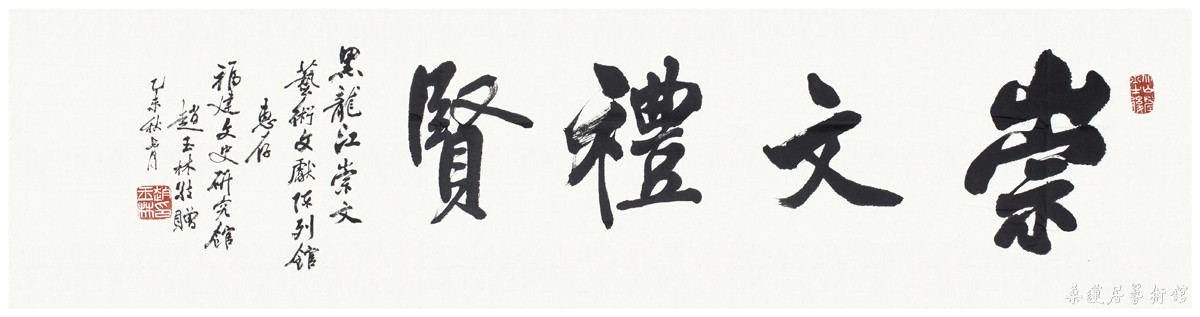 崇文禮賢
黑龍江崇文
藝術文獻陈列館
惠存
福建文史研究館
趙玉林敬贈
乙未秋七月
趙玉林印
桑蓮居藝術館